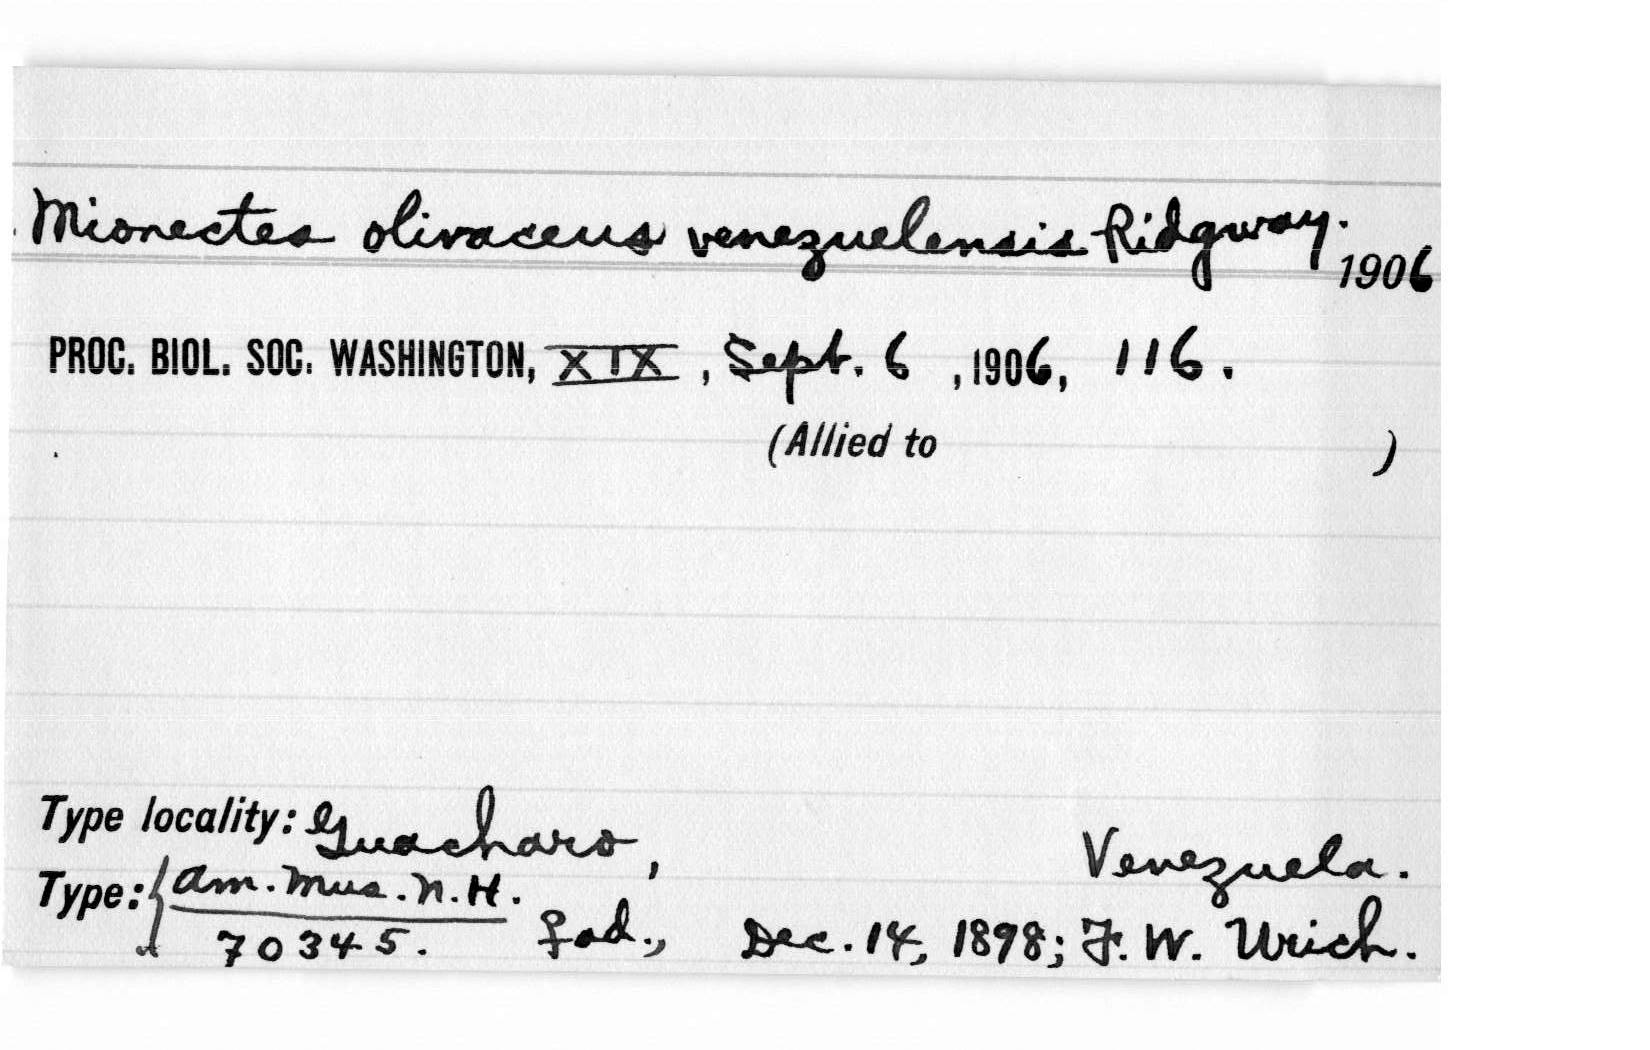 Mionectes olivaceus venezuelensis Ridgway.
1906
PROC. BIOL. SOC. WASHINGTON, XIX, Sept. 6, 1906, 116.
(Allied to )
Type locality: Guacharo, Venezuela.
Type: { Am. Mus. N. H.
70345. ♀ ad., Dec. 14, 1898; F. W. Urich.